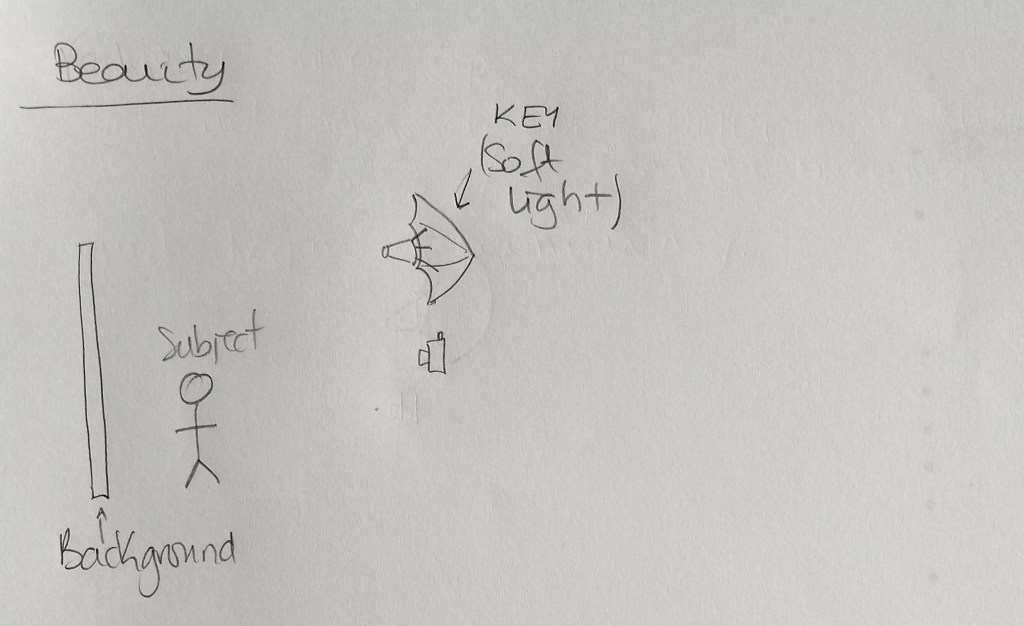 Beauity
KEY
(Soft
light)
Subject
Background